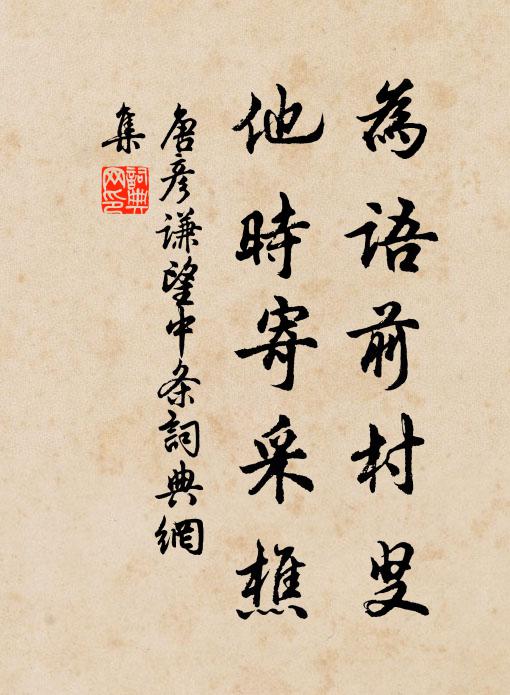 為語前村叟
他時寄采樵
唐彥謙望中条詞典網
集
詞典網印